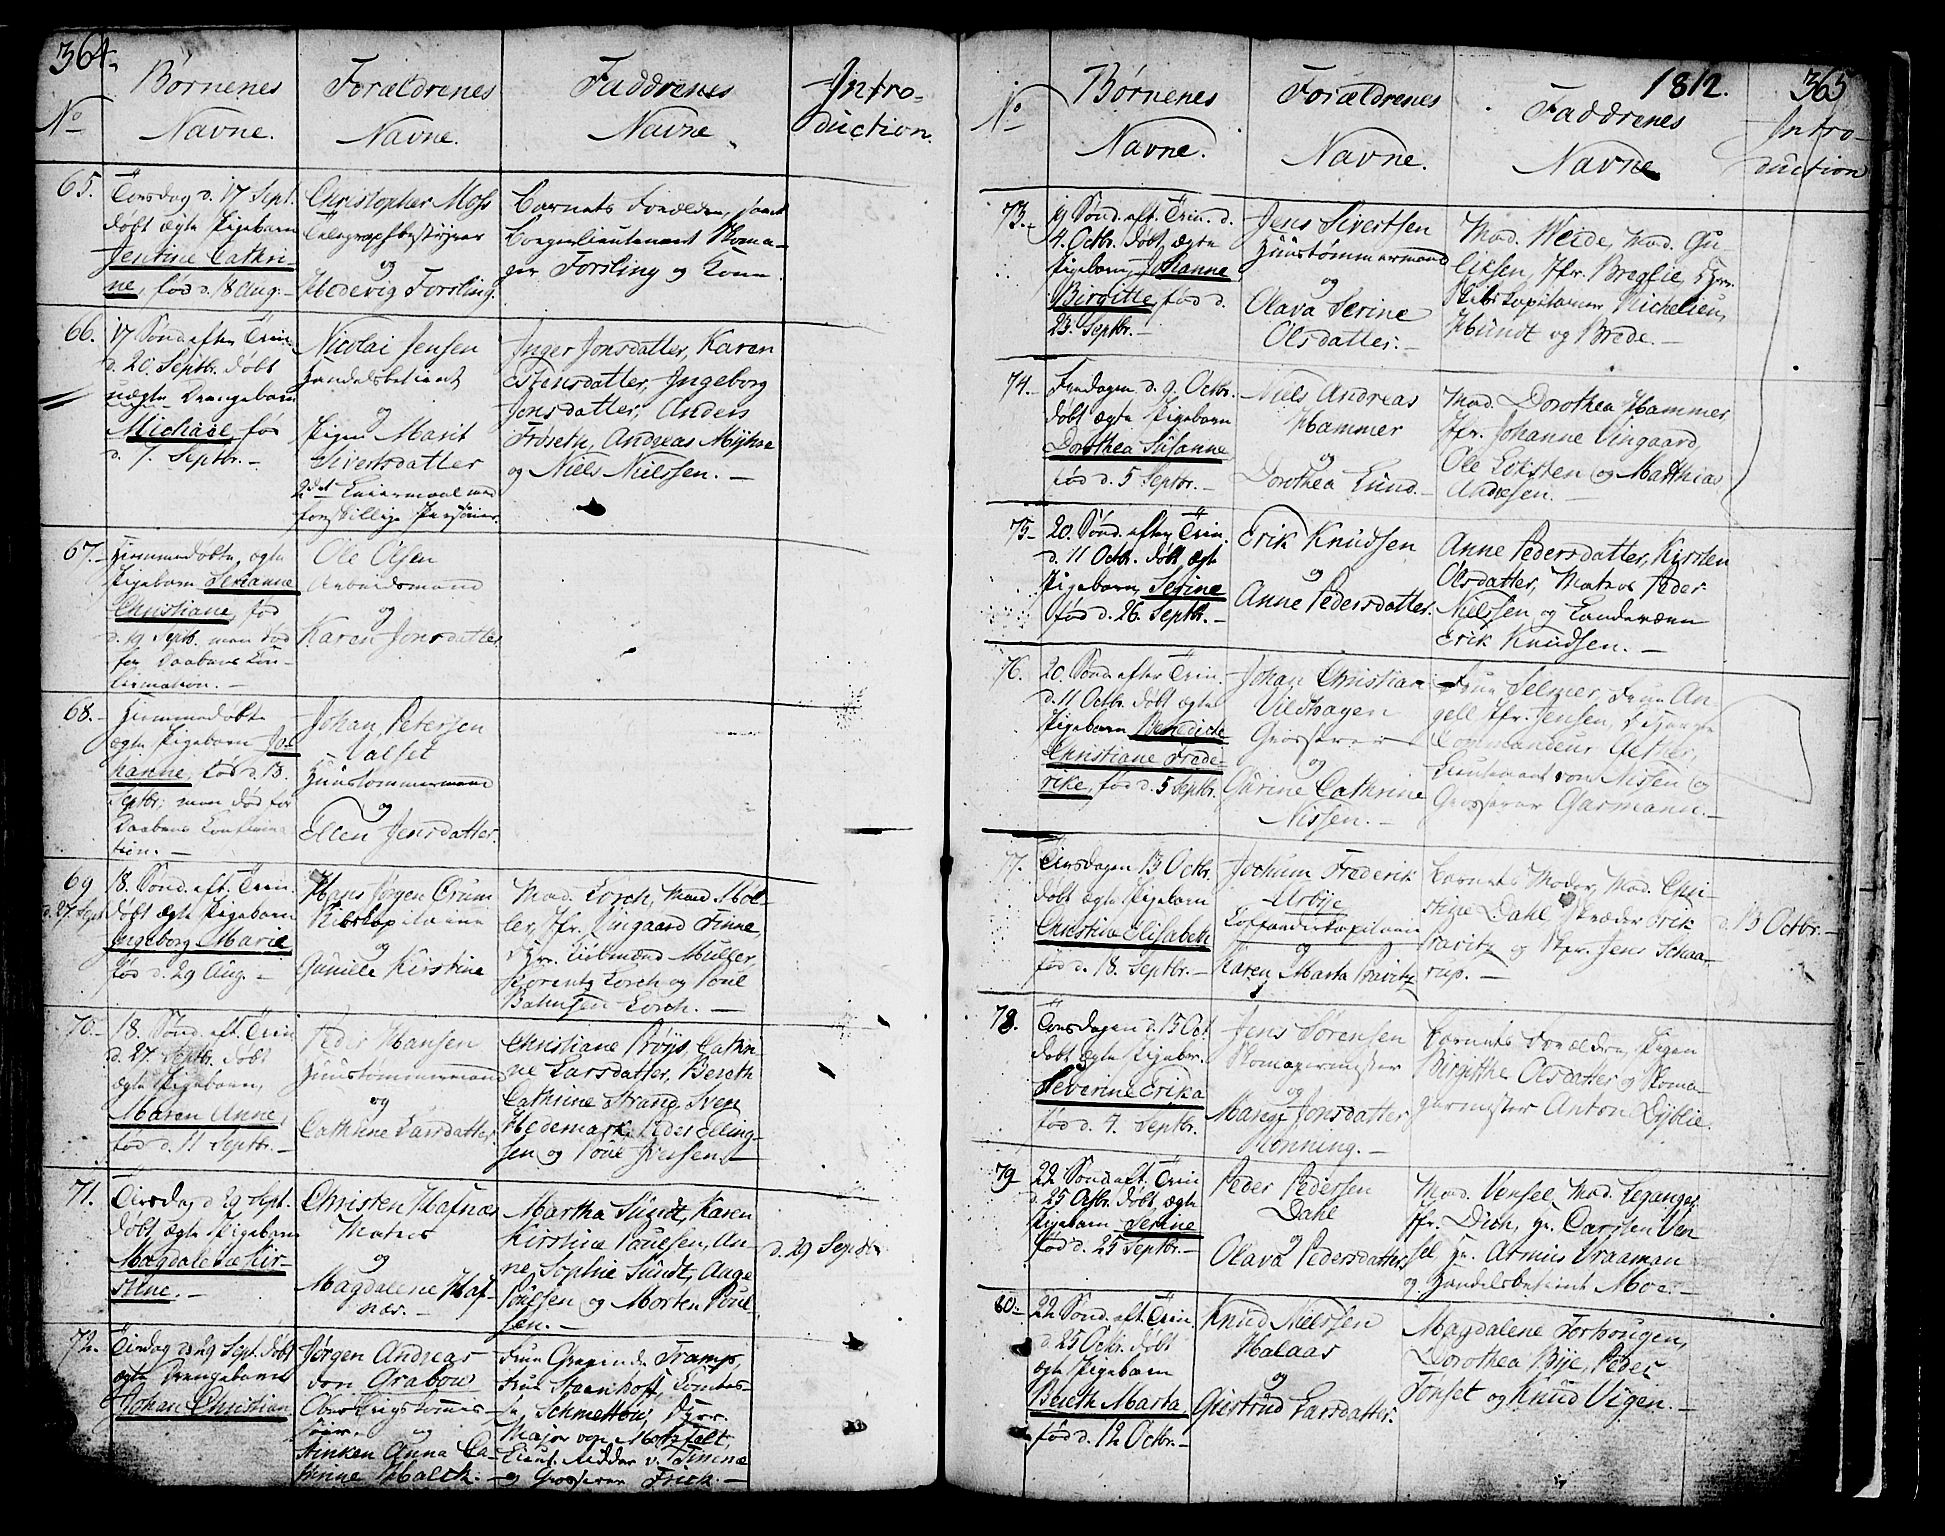 364.
No
Børnenes
Navne.
Forældrenes
Navne.
Faddrenes
Navne
Intro-
duction.
65.
Torsdag d. 17 Sept.
døbt ægte Pigebarn
Jentine Cathri-
ne, fød d. 18 Aug.-
Christopher Moss
Telegrafbestyrer
og
Hedevig Forsling.
Barnets Forældre, samt
Borgerlieutenant Skoma-
ger Forsling og Kone
66.
17 Sønd. efter Trin.
d. 20. Septbr. døbt
uægte Drengebarn
Michael, fød
d. 7. Septbr.-
Nicolai Jensen
Handelsbetient
og
Pigen Marit
Sivertsdatter
2det Leiermaal med
forskillige Personer.
Inger Jonsdatter, Karen
Stensdatter, Ingeborg
Jonsdatter, Anders
Frøseth, Andreas Myhre
og Niels Nielssen.-
67.-
Hiemmedøbte, ægte
Pigebarn Serianne
Christiane, fød
d. 19 Septb. men død
før Daabens Con-
firmation.-
Ole Olsen
Arbeidsmand
og
Karen Jonsdatter
68.-
Hiemmedøbte
ægte Pigebarn Jo-
hanne, fød d. 13.
Septbr, men død før
Daabens Confirma
tion.-
Johan Petersen
Valset
Huustømmermand
og
Ellen Jensdatter.
69
d. 27. Sept
18. Sønd. eft. Trin.
døbt ægte Pigebarn
Ingeborg Marie
fød d. 29 Aug.-
Hans Jørgen Crum
Skibskapitaine
og
Gunille Kirstine
Mad. Lorch, Mad. Møl-
ler, Jfr. Lingaard Finne,
Hrr. Lorentz Lorch og Poul
70-
18. Sønd. eft. Trin
d. 27. Septbr. døbt
ægte Pigebarn,
Maren Anne,
fød d. 11 Septbr.-
Peder Hansen
Huustømmermand
og
Cathrine Larsdatter
Christiane Røys, Cathri
ne Larsdatter, Bereth
Cathrine Strand, Svend
Hedemark, Peder Elling-
sen og Poul Iversen.
71.
Tirsdag d 29 Sept.
døbt ægte Pigebarn
Magdalene Kir-
stine.-
Christen Hafnæs
Matros
og
Magdalene Haf-
næs.-
Martha Sundt, Karen
Kirstine Poulsen, An-
ne Sophie Sundt, Aage
Poulsen og Morten Poul
sen.-
d. 29 Septbr
72.
Tirsdag d. 29 Sept. døbt
ægte Drengebarn
Johan Christian
Jørgen Andreas
von Grabow
Ober Krigskommis-
sair.
og
Anna Ca-
thrine Holck.-
Frue Grevinde Tramp,
Frue Staenhoff, Comtes-
se Schmettow, Herr
Major von Motzfelt,
Lieut. Ridder v.
og Grosserer Frick.-
1812.
365
No
Børnenes
Navne.
Forældrenes
Navne.
Faddrenes
Navne
Intro-
duction
73.-
19 Sønd. eft. Trin. d.
4. Octbr. døbt ægte
Pigebarn, Johanne
Birgitte, fød d.
23. Septbr.-
Jens Sivertsen
Huustømmermand
og
Olava Serine
Olsdatter.-
Mad. Weide, Mad. Gu
liksen, Jfr. Breglie, Hrr.
Skibskapitainer Michelsen,
Hundt og Brede.-
74.-
Fredagen d. 9. Octbr.
døbt ægte Pigebarn
Dorothea Susanne
fød d. 5 Septbr.-
Niels Andreas
Hammer
og
Dorothea Lund.-
Mad. Dorothea Hammer,
Jfr. Johanne Lingaard,
Ole Eksten og Matthias
Andresen.-
75-
20. Sønd. efter Trin.
d. 11 Octbr. døbt ægte
Pigebarn, Serine
fød d. 26. Septbr.-
Erik Knudsen
og
Anne Pedersdatter.
Anne Pedersdatter, Kirsten
Olsdatter, Matros Peder
Nielssen og Landeværn
Erik Knudsen.-
76.
20. Sønd. efter Trin.
d. 11 Octbr. døbt ægte
Pigebarn Benedicte
Christiane Frede-
rike, fød d. 5 Septbr.
Johan Christian
Vildhagen
Grosserer
og
Garine Cathrine
Nissen.-
Frue Selmer, Frue An
gell, Jfr. Jensen,
Commandeur
Lieutenant von Nissen og
Grosserer Garmann.-
77.
Tirsdagen 13 Octbr.
døbt ægte Pigebarn
Christine Elisabeth
fød d. 18. Septbr.-
Jochum Frederik
Urbye
Coffardikapitain
og
Karen Marta Pravitz
Barnets Moder, Mad. Chri-
stine Dahl, Skræder Erik
Pravitz og Skpr. Jens Schaa-
rup.-
d. 13 Octbr.-
78.
Torsdagen d. 15 Oct.
døbt ægte Pigebr.
Severine Erika
fød d. 4. Septbr.
Jens Sørensen
Skomagermester
og
Maren Jonsdatter
Rønning.-
Barnets Forældre, Pigen
Birgitthe Olsdatter og Skoma-
germester Anton Dyblie.
79
22 Sønd. eft. Trin
d. 25 Octbr. døbt ægte
Pigebarn Serine
fød d. 25 Septbr.-
Peder Pedersen
Dahl
og
Olava Pedersdatter
Mad. Vensel, Mad. Leganger
Jfr. Dick, Hr. Carsten Ven
sel, Hr. Armius Vraaman
og Handelsbetient Moe.-
80-
22 Sønd. eft. Trin.
d. 25 Octbr. døbt
ægte Pigebarn
Bereth Marta
fød d. 12 Octbr.-
Knud Nielssen
Halaas
og
Giertrud Larsdatter.
Magdalene Forbougen,
Dorothea Bye, Peder
Tønset og Knud Vigen.-